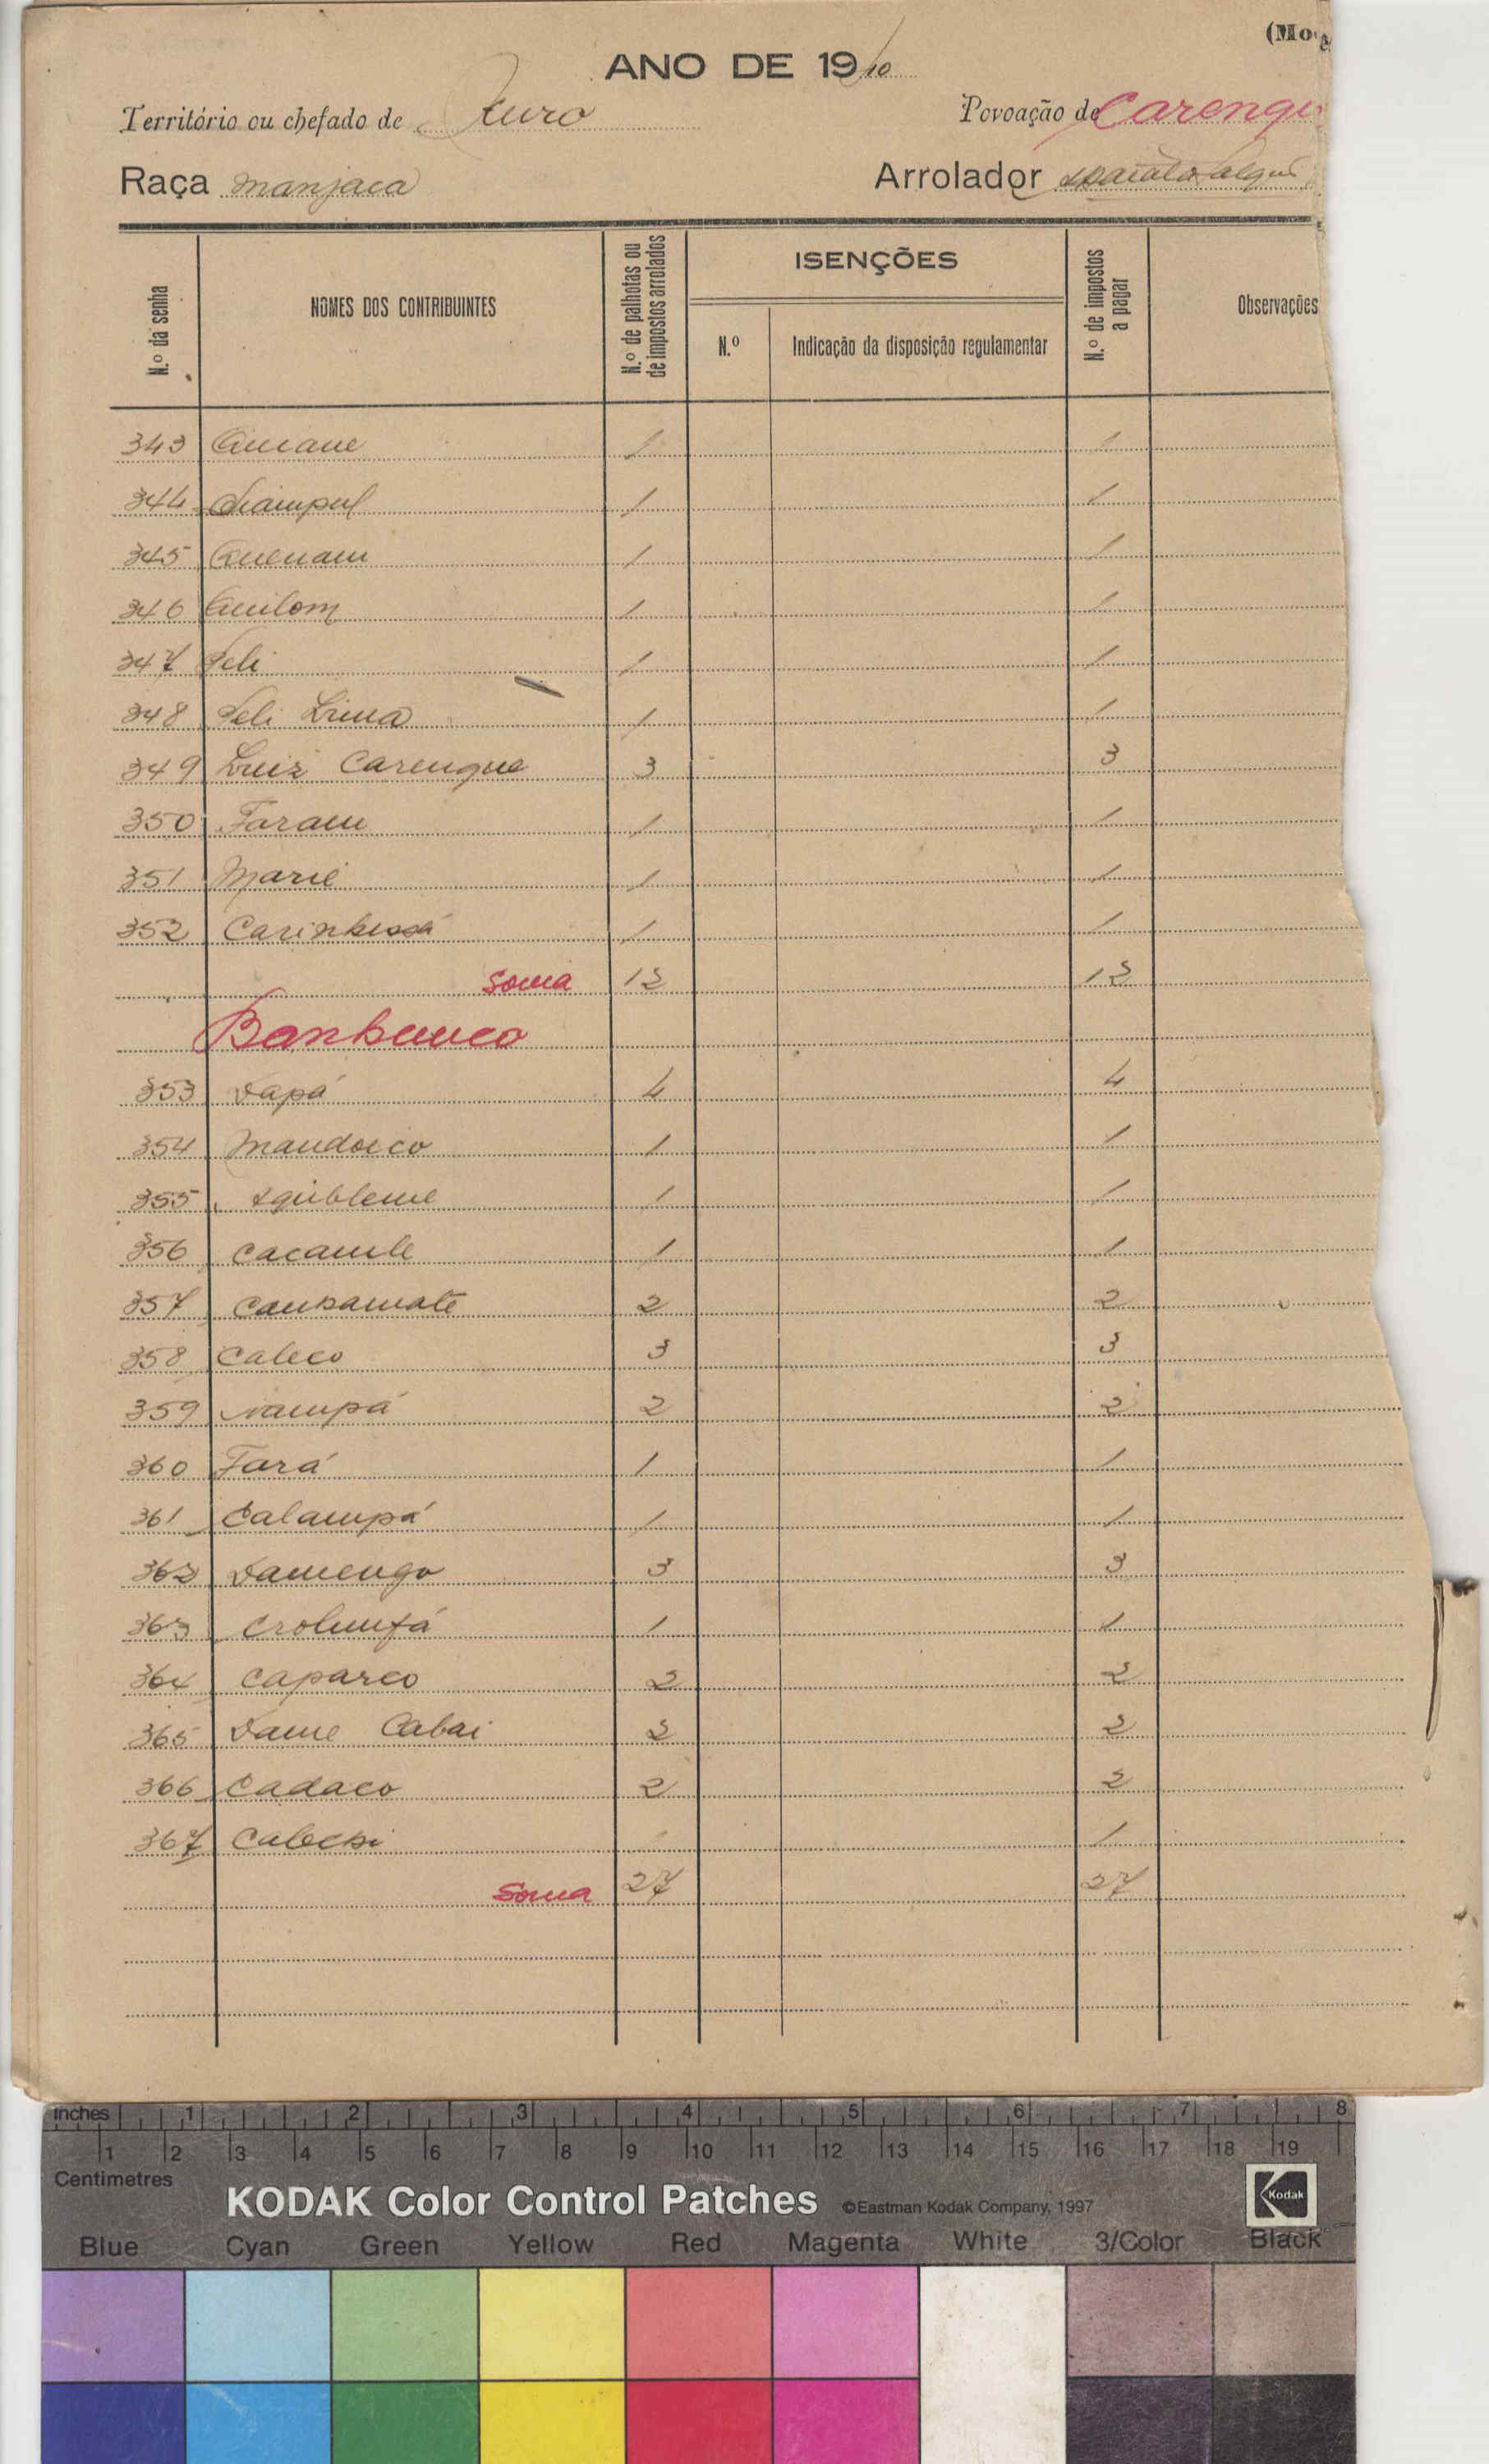 (Mo
ANO DE 1910
Território ou chefado de Churo
Povoação de Carengu
Raça manjaca
Arrolador
N.º da senha
NOMES DOS CONTRIBUINTES
N.º de palhotas ou de impostos arrolados
ISENÇÕES
N.º
Indicação da disposição regulamentar
N.º de impostos a pagar
Observações
343 1 1
344 1 1
345 Quenam 1 1
346 Quilom 1 1
347 Seli 1 1
348 Seli Lima 1 1
349 Luiz Carengue 3 3
350 Faram 1 1
351 Marie 1 1
352 1 1
Soma 12 12
353 Dapá 4 4
354 1 1
355 1 1
356 1 1
357 Causamate 2 2
358 Caleco 3 3
359 Nampá 2 2
360 Fará 1 1
361 Calampá 1 1
362 Damengo 3 3
363 1 1
364 Capareo 2 2
365 Dame Cabai 2 2
366 Cadaco 2 2
367 1
Soma 27 27
inches 1 2 3 4 5 6 7 8
1 2 3 4 5 6 7 8 9 10 11 12 13 14 15 16 17 18 19
Centimetres
KODAK Color Control Patches ©Eastman Kodak Company, 1997 Kodak
Blue Cyan Green Yellow Red Magenta White 3/Color Black